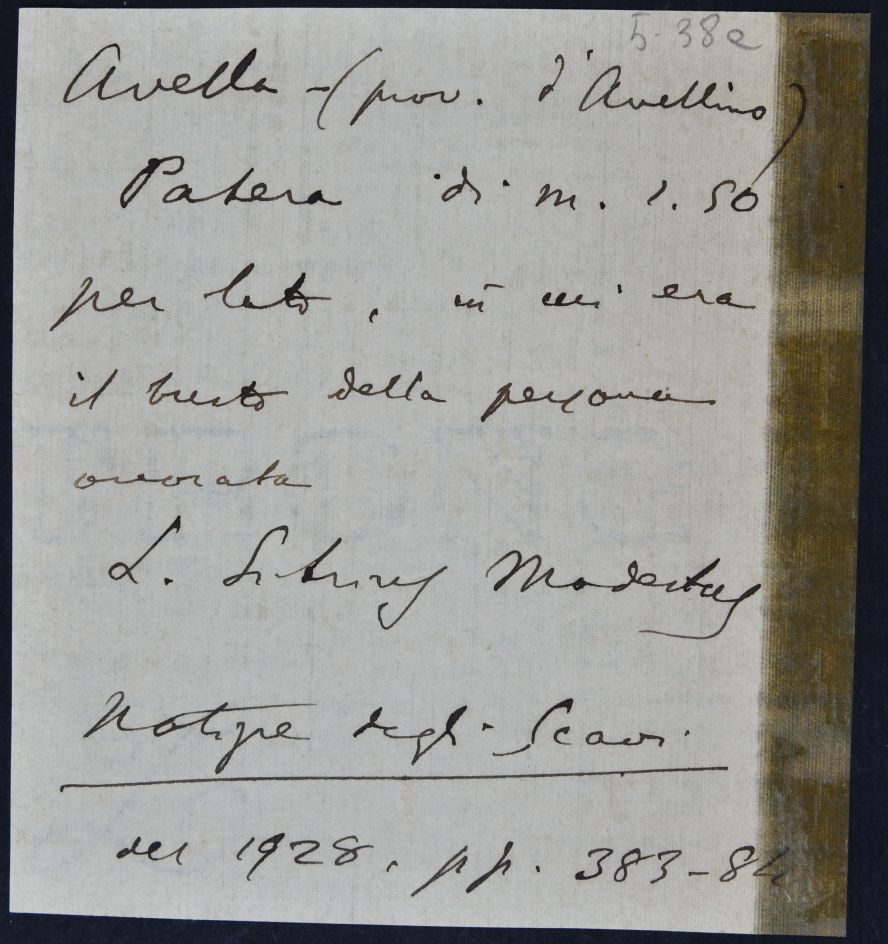 5-38a
Avella - (prov. d'Avellino)
Patera di m. 1.50
per lato, in cui era
il busto della persona
onorata
L. Sitrius Modestus
Notizie degli Scavi
del 1928, pp. 383-84